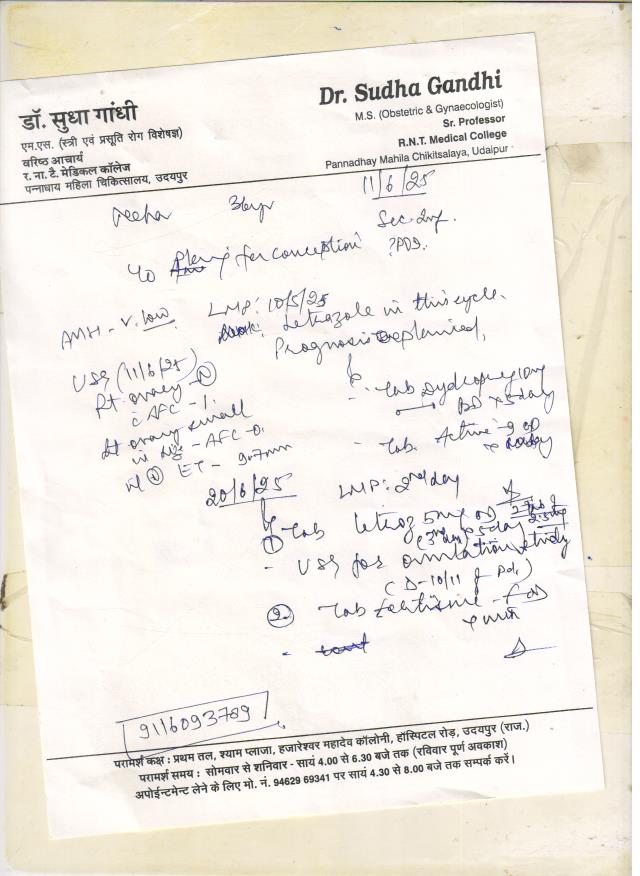 डॉ. सुधा गांधी
एम.एस. (स्त्री एवं प्रसूति रोग विशेषज्ञ)
वरिष्ठ आचार्य
र. ना. टै. मेडिकल कॉलेज
पन्नाधाय महिला चिकित्सालय, उदयपुर
Dr. Sudha Gandhi
M.S. (Obstetric & Gynaecologist)
Sr. Professor
R.N.T. Medical College
Pannadhay Mahila Chikitsalaya, Udaipur
11/6/25
Sec. Inf.
for conception
? PID.
AMH - v. low
LMP: 10/5/25
Letrozole in this cycle.
Prognosis explained,
USG (11/6/25)
Rt ovary - (N)
c AFC - 1.
Lt ovary small
in size - AFC - 0.
ET - 9.7mm
- Tab
BD x 5 day
- Tab. Active - 9 OD
20/6/25
LMP: 2nd day
① Tab Letroz 5mg OD
(3rd day) x 5 day
2.5mg
- USG for ovulation study
(D-10/11 of Pd.)
② Tab
9116093789
परामर्श कक्ष : प्रथम तल, श्याम प्लाजा, हजारेश्वर महादेव कॉलोनी, हॉस्पिटल रोड़, उदयपुर (राज.)
परामर्श समय : सोमवार से शनिवार - सायं 4.00 से 6.30 बजे तक (रविवार पूर्ण अवकाश)
अपोईन्टमेन्ट लेने के लिए मो. नं. 94629 69341 पर सायं 4.30 से 8.00 बजे तक सम्पर्क करें।